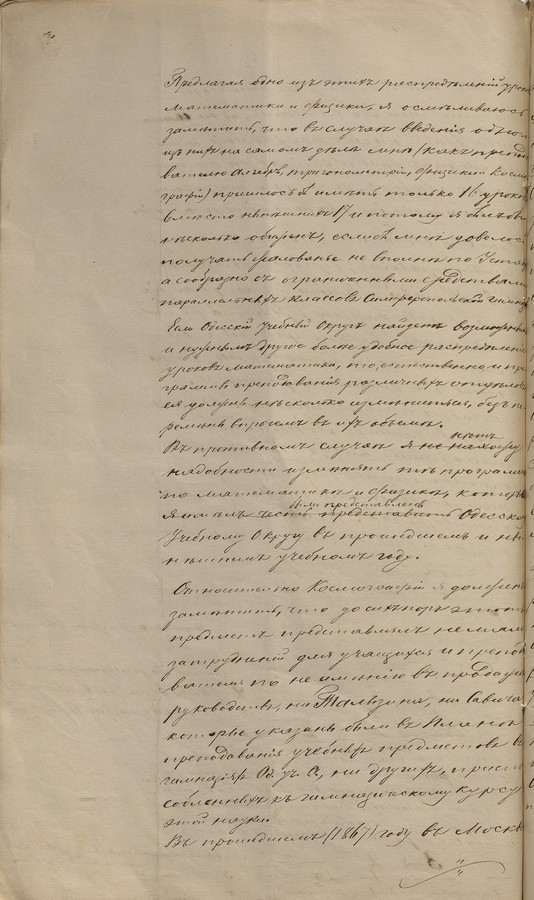 Предлагая одно изъ этихъ распредѣленій уроковъ
математики и физики, я осмѣливаюсь
замѣтить, что въ случаѣ введенія одного
изъ нихъ на самомъ дѣлѣ мнѣ (какъ препода
вателю Алгебры, тригонометріи, физики и Космо
графіи) пришлось бы имѣть только 16 уроковъ
вмѣсто нынѣшнихъ 17 и потому я былъ бы
нѣсколько обиженъ, еслибъ мнѣ довелось
получать жалованье не вполнѣ по Уставу
а сообразно съ ограниченными средствами
параллельныхъ классовъ Симферопольской гимназіи
Если Одесскій Учебный Округъ найдетъ возможнымъ
и нужнымъ другое болѣе удобное распредѣленіе
уроковъ математики, то, естественно, и про
грамма преподаванія различныхъ отдѣловъ
ея должна нѣсколько измѣниться, безъ пе
ремѣны впрочемъ въ ихъ объемѣ.
Въ противномъ случаѣ нѣтъ
надобности измѣнять тѣ программы
по математикѣ и физикѣ, которыя
были представлены Одесскому
Учебному Округу въ прошедшемъ и ны
нѣшнемъ учебномъ году.
Относительно Космографіи я долженъ
замѣтить, что до сихъ поръ этотъ
предметъ представлялъ не мало
затрудненій для учащихся и препода
вателя по не имѣнію въ продажѣ
руководствъ, ни Талызина, ни Савича
которые указаны были въ Планѣ
преподаванія учебныхъ предметовъ въ
гимназіяхъ Од. Уч. О., ни другихъ, приспо
собленныхъ къ гимназическому курсу
этой науки.
Въ прошедшемъ (1867) году въ Москвѣ